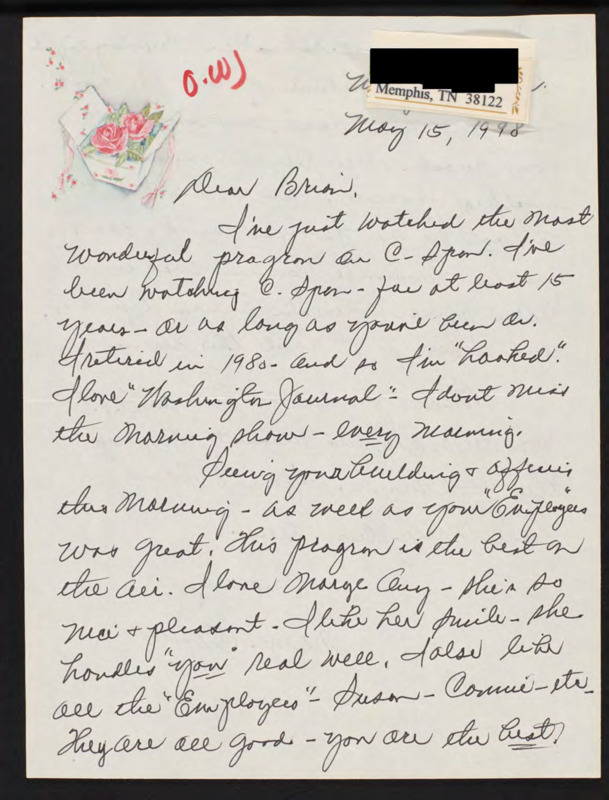 O.W.)
Memphis, TN 38122
May 15, 1998
Dear Brian,
I've just watched the most
wonderful program on C-Span. I've
been watching C. Span - for at least 15
years - or as long as you've been on.
I retired in 1980 - and so I'm "hooked".
I love "Washington Journal" - I don't miss
the morning show - every morning.
Seeing your building & offices
this morning - as well as your "Employees"
was great. This program is the best on
the air. I love Marge - she's so
nice & pleasant. I like her smile - she
handles "you" real well. I also like
all the "Employees" - Susan - Connie - etc -
They are all good - you are the best!